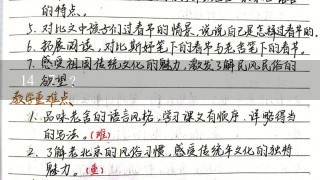 的特点。
5. 对比文中孩子们过春节的情景,说说自己是怎样过春节的。
6. 拓展阅读,对比斯妤笔下的春节与老舍笔下的春节。
7. 感受祖国传统文化的魅力,激发了解民风民俗的
欲望。
14 ?
教学重难点
1. 品味老舍的语言风格,学习课文有顺序、详略得当
的写法。(难)
2. 了解老北京的风俗习惯,感受传统年文化的独特
魅力。(重)